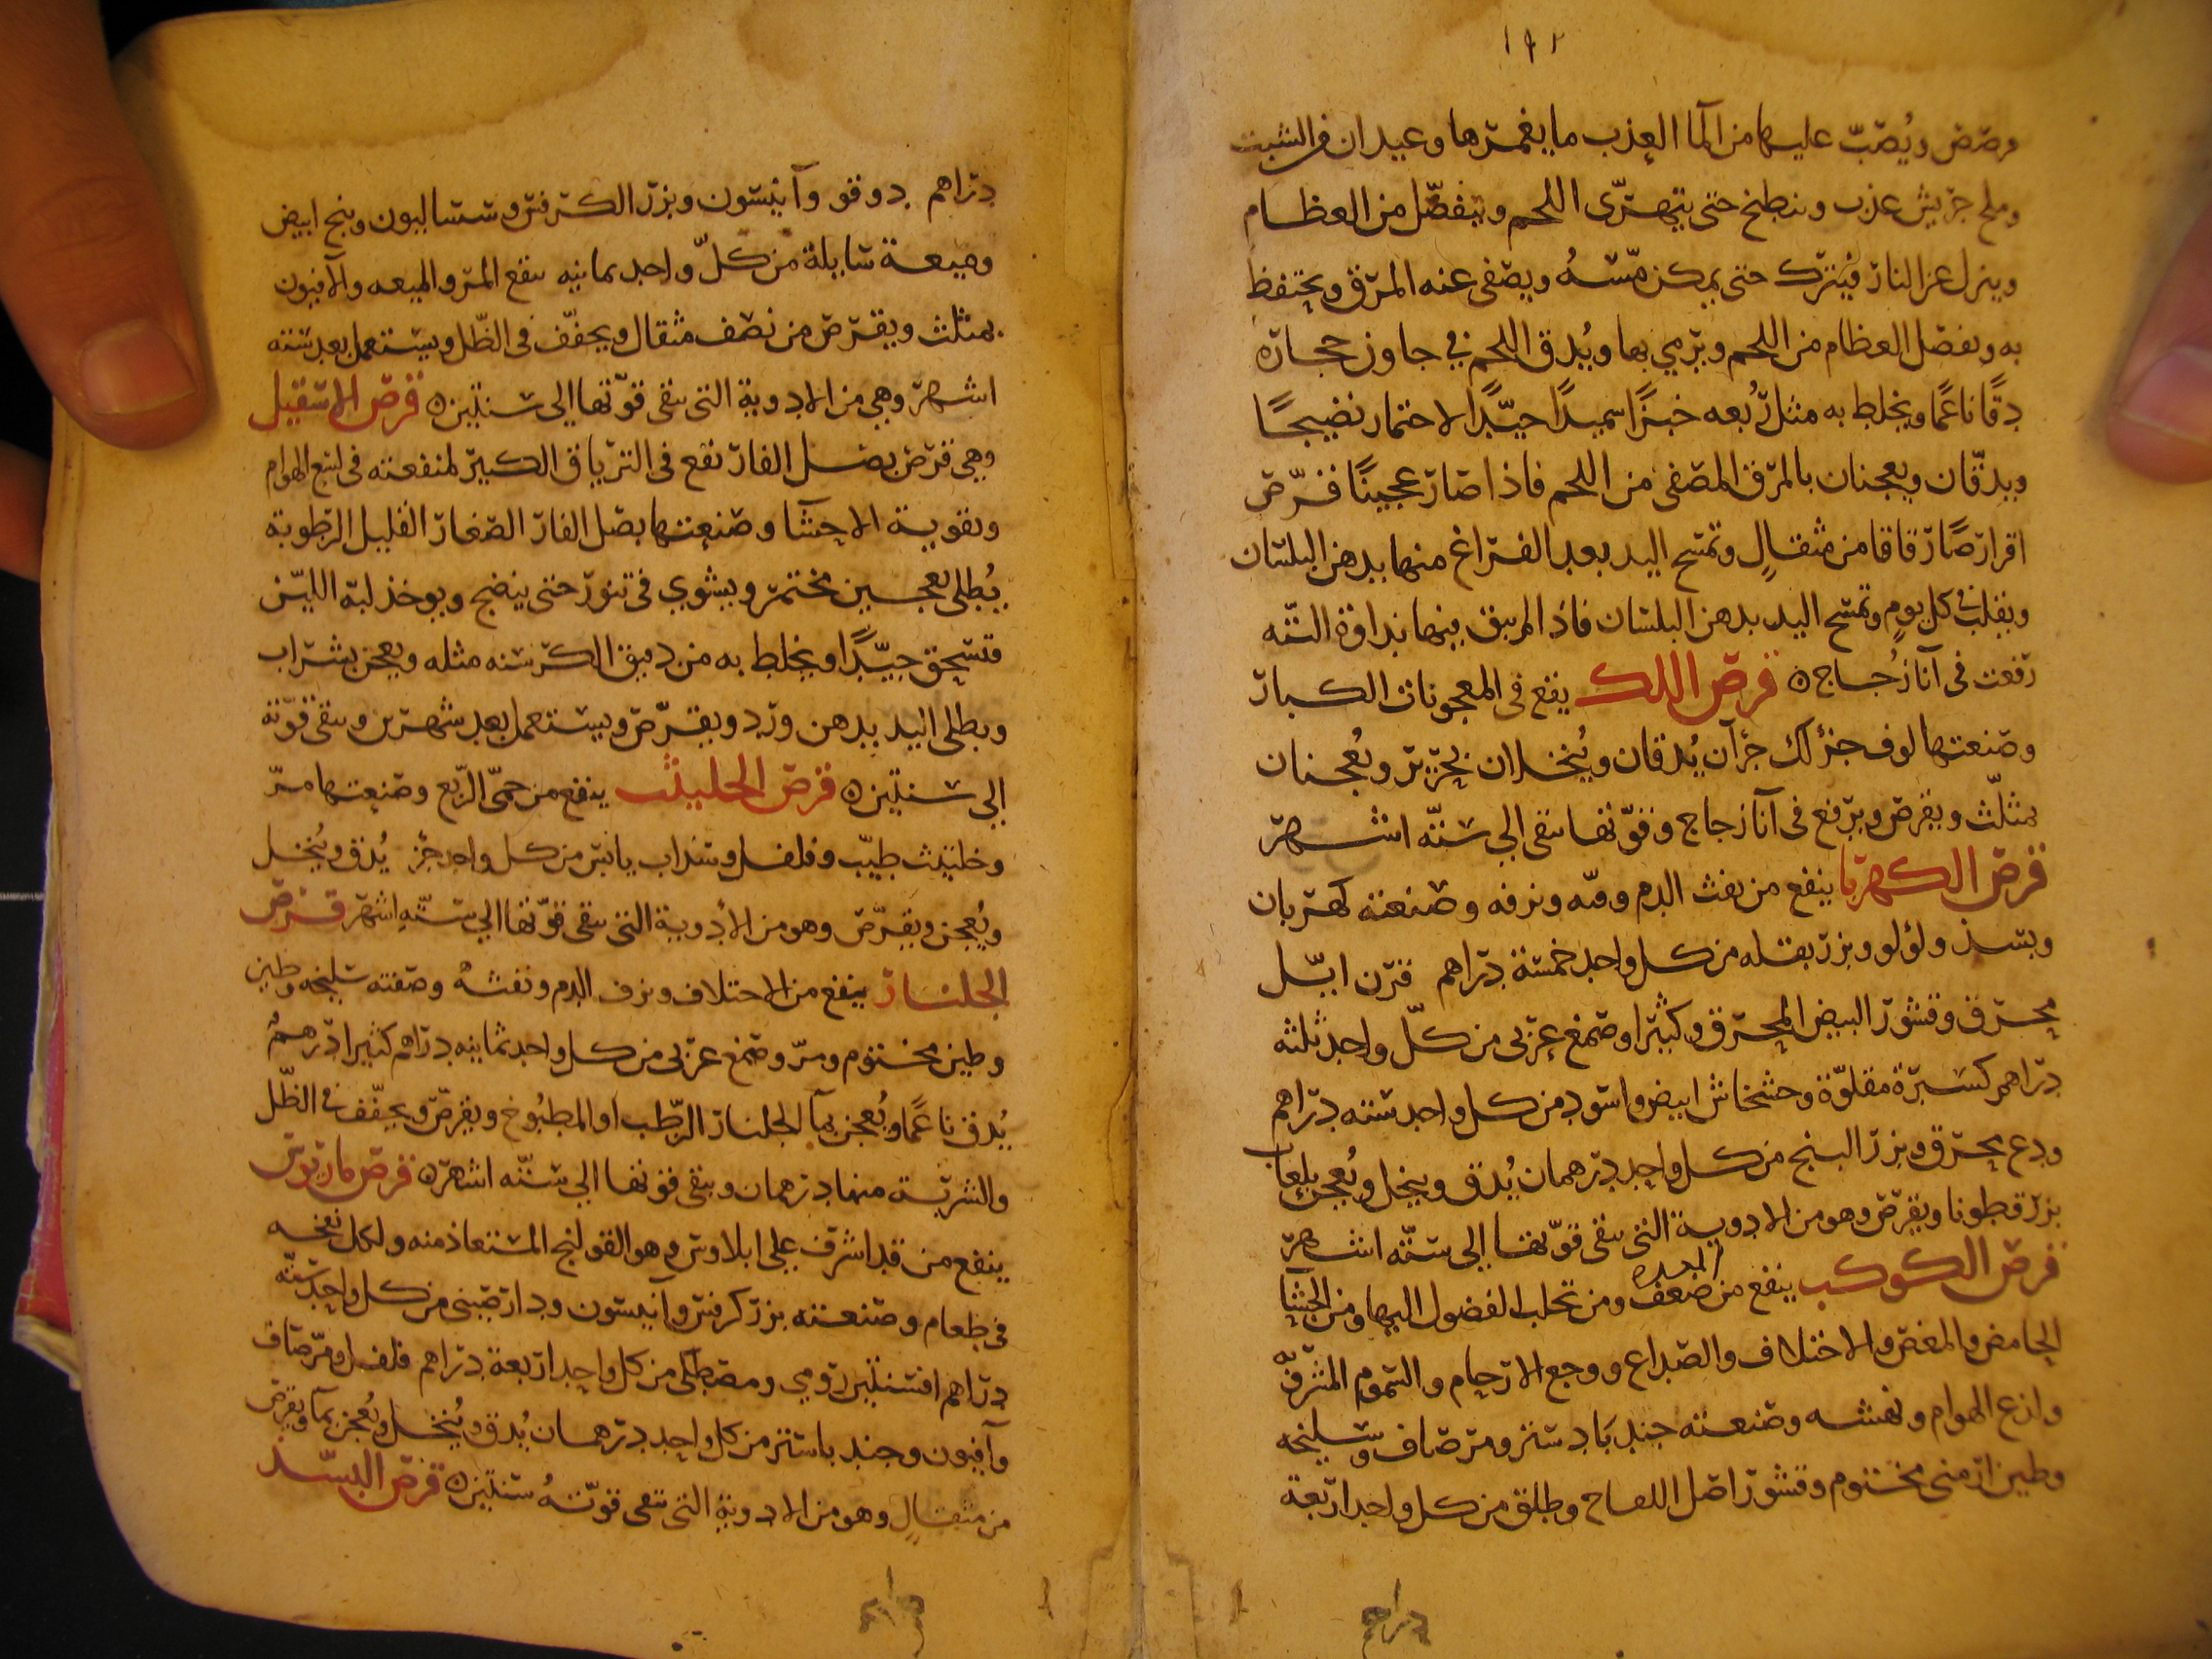 ١٩٢
وصَصَ ويُصَبّ عليها من الماا العذب ما يغمرها وعيدان من الشبت
وملح جريش عذب ويطبخ حتى يتهرّى اللحم ويتفصّل من العظام
وينزل عن النار فيُترك حتى يمكن مسّهُ ويصفى عنه المرق ويحتفظ
به وتفصل العظام من اللحم ويرمي بها ويُدق اللحم في جاون حجاره
دقًا ناعمًا ويخلط به مثل رُبعه خبزًا سميدًا جيّدًا الاختمار نضيجًا
ويدقّان ويعجنان بالمرق المصفى من اللحم فاذا صار عجينًا قرّص
اقراصًا رقاقا من مثقالٍ وتمسح اليد بعد الفراغ منها بدهن البلسان
ويقلب في كل يومٍ وتمسح اليد بدهن البلسان فاذا لم يبق فيها نداوة البتّه
رفعت في آنا زُجاج ه قرص اللك يقع في المعجونات الكبار
وصنعتها لوف جزؤ لك جزآن يُدقان ويُنخلان بحريرٍ ويُعجنان
بمثلّث ويقرص ويرفع في آنا زجاج وقوّتها تبقى الى ستّه اشهر
قرص الكهربا ينفع من نفث الدم وقيّه ونزفه وصنعته كهربان
وبسذ ولؤلو وبزر بقله من كل واحد خمسة دراهم قرن ايّل
محرق وقشور البيض المحرق وكثيرا وصمغ عربى من كلّ واحد ثلثه
دراهم كسبرة مقلوّة وخشخاش ابيض واسود من كل واحد سته دراهم
ودع محرق وبزر البنج من كل واحد درهمان يُدق وينخل ويُعجن بلعاب
بزر قطونا ويقرّص وهو من الادوية التى تبقى قوّتها الى ستّه اشهر
قرص الكوكب ينفع من ضعف المعده ومن تحلب الفضول اليها ومن الجشا
الحامض والمغص والاختلاف والصداع ووجع الارحام والسموم المشرفيّه
ولذع الهوام ونهشه وصنعته جند بادستر ومر صاف وسليخه
وطين ارمنى مختوم وقشور اصل اللفاح وطلق من كل واحد اربعة
دراهم
دراهم دوقو وآنيسون وبزر الكرفس وسساليون وبنج ابيض
وميعة سايلة من كلّ واحد ثمانيه ينقع المر والميعه والافيون
بمثلث ويقرص من نصف مثقال ويجفّف في الظّل ويستعمل بعد سته
اشهر وهي من الادوية التى تبقى قوّتها الى سنتين ه قرص الاسقيل
وهي قرص بصل الفار تقع في الترياق الكبير لمنفعته في لسع الهوام
وتقوية الاحشا وصنعتها بصل الفار الصغار القليل الرطوبة
يُطلى بعجين مختمر ويشوي في تنور حتى ينضج ويوخذ لبّه الليّن
فتسحق جيّدًا ويخلط به من دقيق الكرسنه مثله ويعجن بشراب
ويطلى اليد بدهن ورد ويقرّص ويستعمل بعد شهرين وتبقى قوّته
الى سنتين ه قرص الحليتث ينفع من حمّى الرّبع وصنعتها مرّ
وحلتيث طيّب وفلفل وسذاب يابس من كل واحد جزؤ يُدق ويُنخل
ويُعجن ويقرّص وهو من الأدوية التى تبقى قوّتها الى ستّه اشهر قرص
الجلنار ينفع من الاختلاف ونزف الدم ونفثهُ وصفته سليخه وطين
وطين مختوم ومرّ وصمغ عربى من كل واحد ثمانيه دراهم كثيرا درهمٌ
يُدق ناعمًا ويُعجن بمآ الجلنار الرّطب او المطبُوخ ويقرّص ويجفّف في الظّل
والشربة منها درهمان وتبقى قوتها الى ستّه اشهر ه قرص مارتوس
ينفع من قد اشرف على ايلاوس وهو القولنج المستعاذ منه ولكل نفخه
في طعام وصنعته بزر كرفس وآنيسون ودارصينى من كل واحد ستّه
دراهم افسنتين رومي ومصطكى من كل واحد اربعة دراهم فلفل ومرّ صاف
وآفيون وجند باستر من كل واحد درهمان يُدق ويُنخل ويُعجن بمآ ويقرص
من مثقالٍ وهو من الادوية التى تبقى قوّتهُ سنتين ه قرص البسّذ